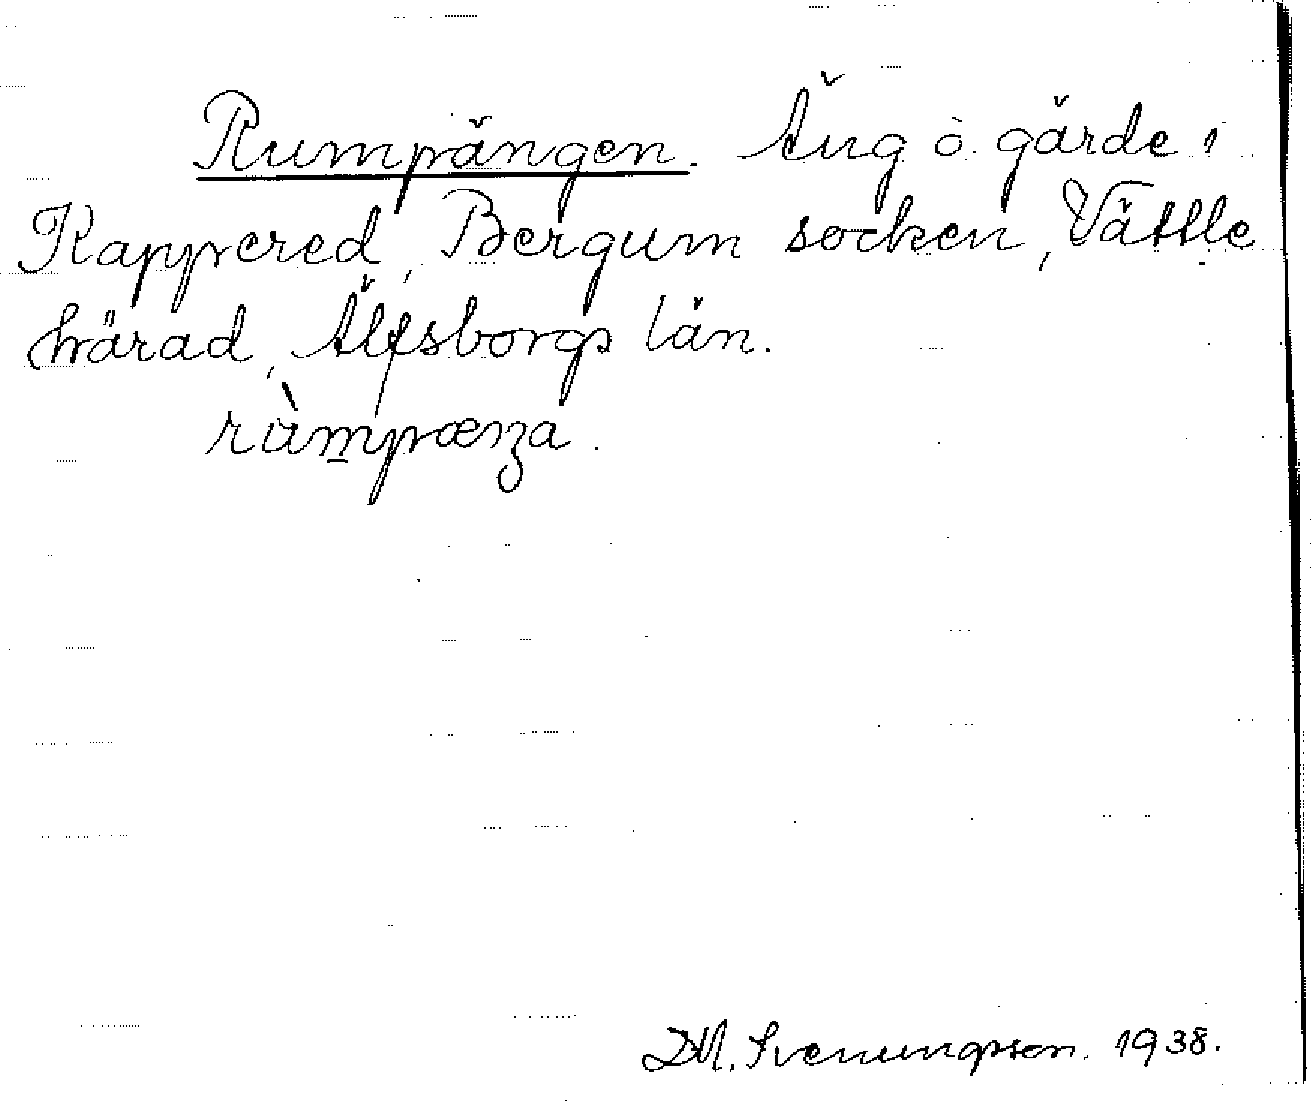 Rumpängen. Äng o. gärde i
Kappered, Bergum socken, Vättle
härad, Älfsborgs län.
rùmpænᶎa.
D.M. Svenungsson. 1938.